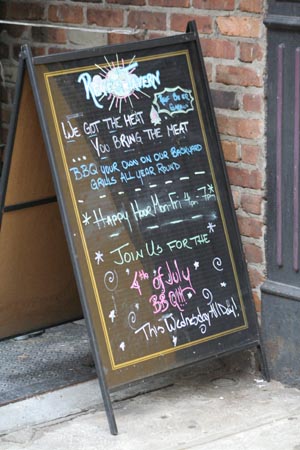 We got the meat
...You bring the meat
BBQ your own on our Backyard
grills all year round
*Happy Hour Mon-Fri 4pm-7*
Join Us for the
4th of July
BBQ!!!
This Wednesday All Day!